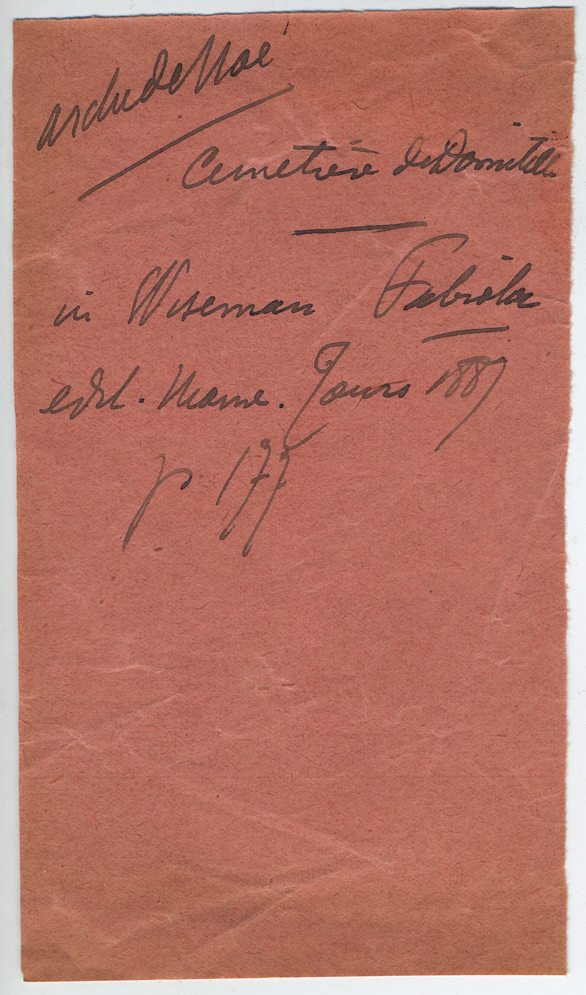 arche de Noé
Cemetière de Domitille
in Wiseman Fabiola
edit. Mame. Tours 1887
p 177